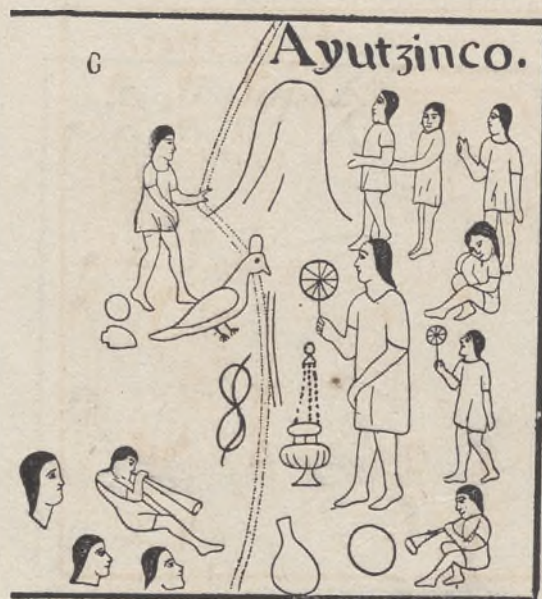 Ayutzinco.
G